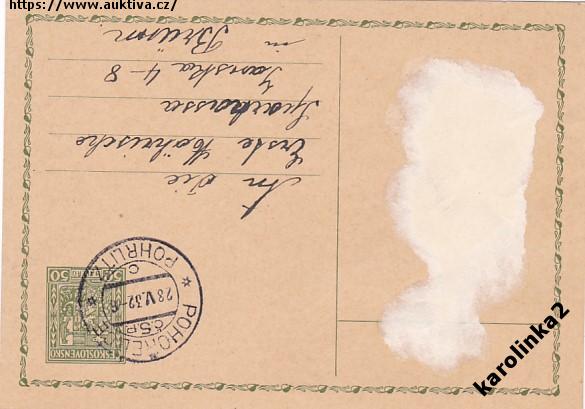 https://www.auktiva.cz/
An die
Erste Mährische
Sparkassa
Janska 4-8
in Brünn
ČESKOSLOVENSKO
50 50
POHOŘELICE
ČSR
28.V.32
C
* POHRLITZ *
karolinka2